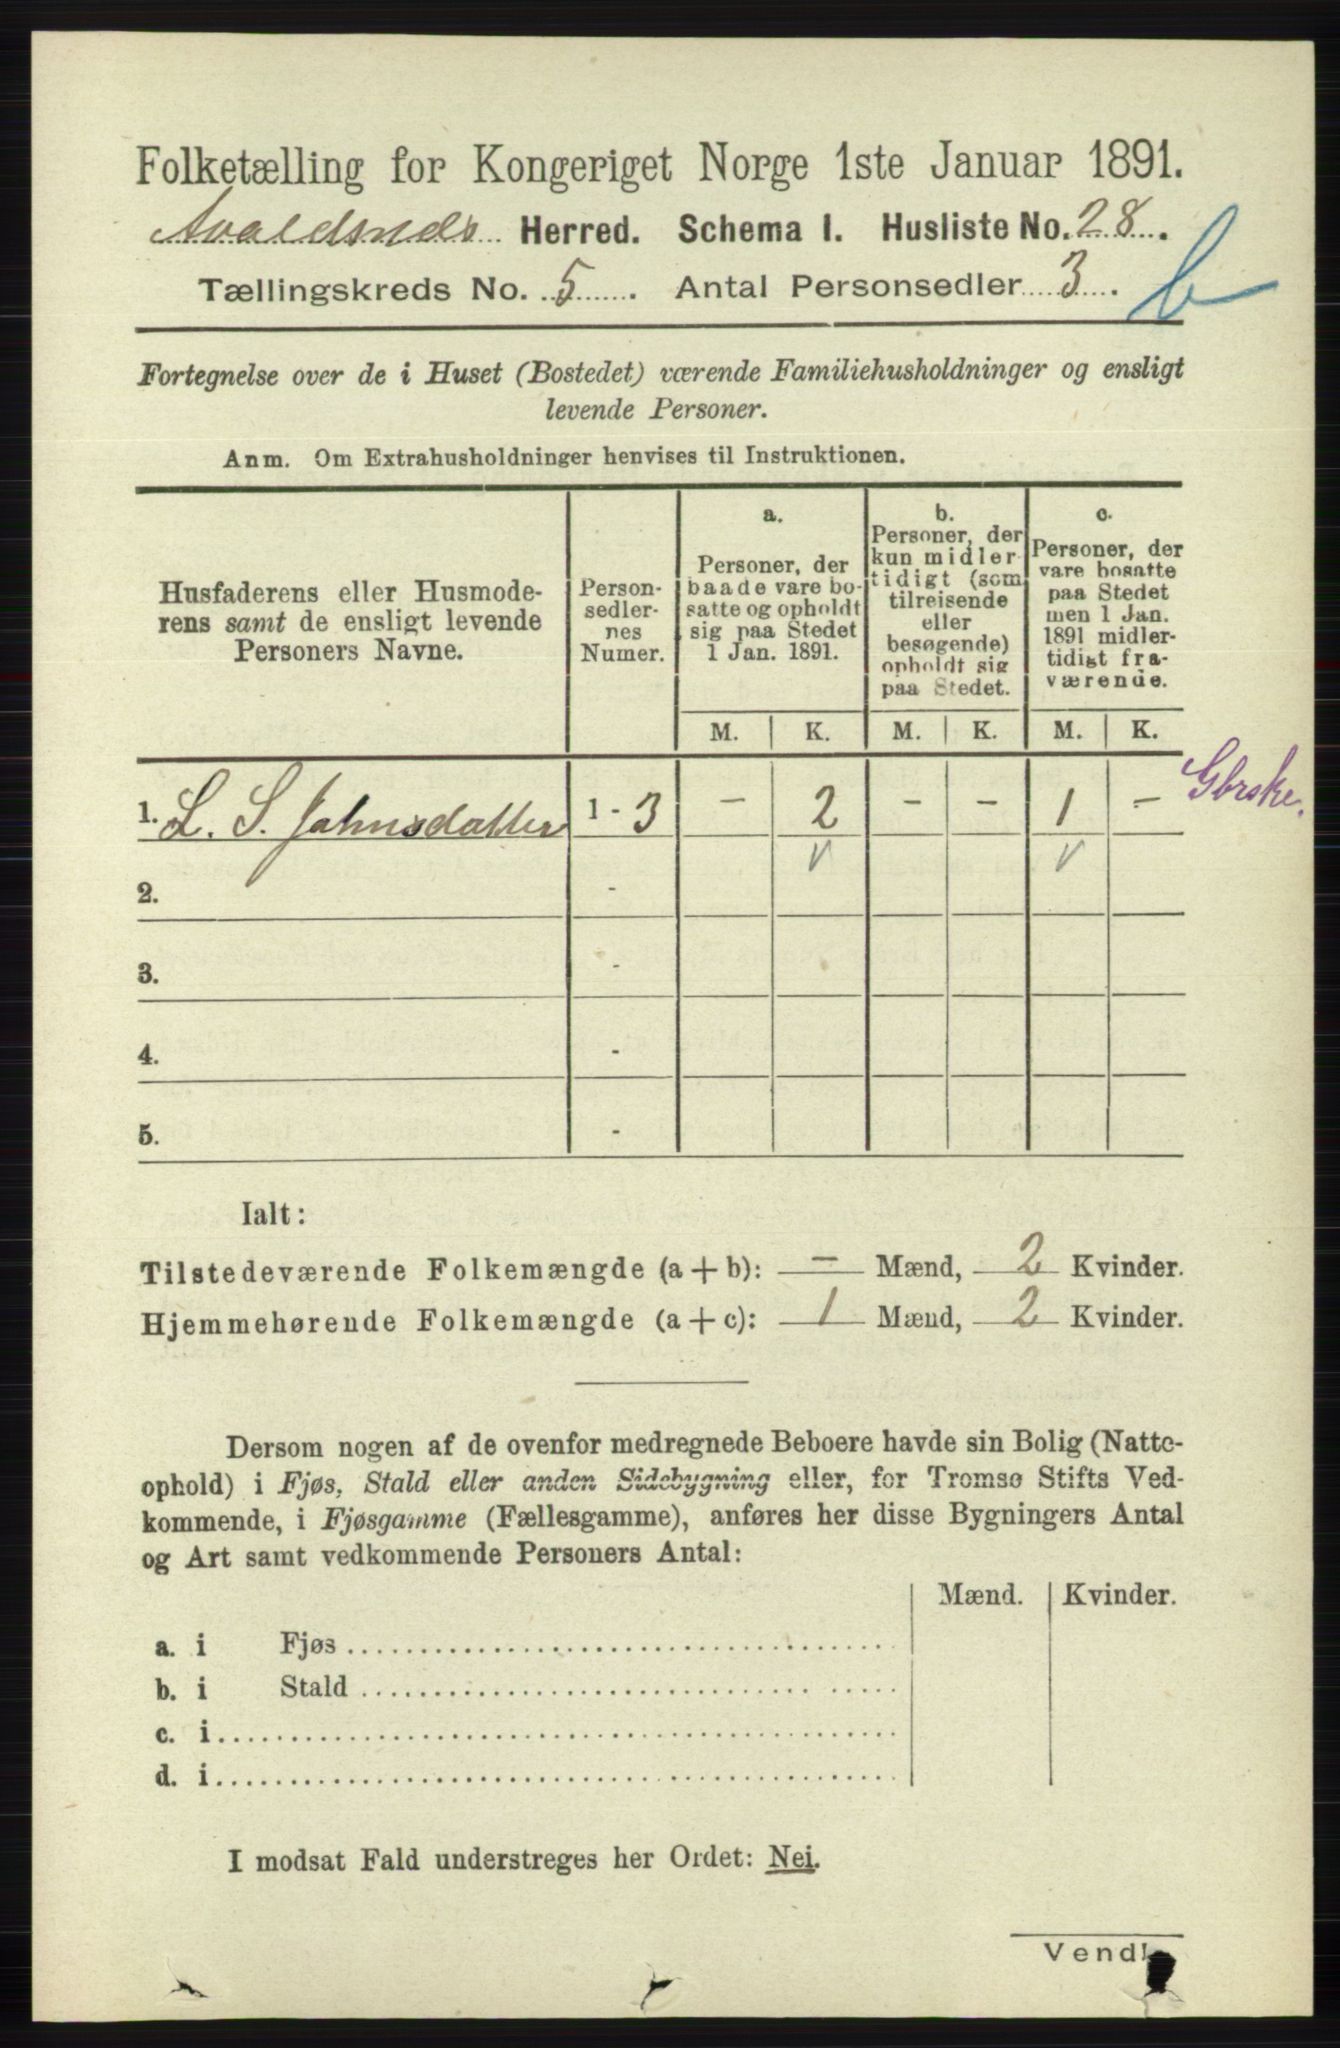 Folketælling for Kongeriget Norge 1ste Januar 1891.
Avaldsnæs Herred. Schema I. Husliste No. 28.
Tællingskreds No. 5. Antal Personsedler 3. b
Fortegnelse over de i Huset (Bostedet) værende Familiehusholdninger og ensligt
levende Personer.
Anm. Om Extrahusholdninger henvises til Instruktionen.
Husfaderens eller Husmode-
rens samt de ensligt levende
Personers Navne.
Person-
sedler-
nes
Numer.
a.
Personer, der
baade vare bo-
satte og opholdt
sig paa Stedet
1 Jan. 1891.
b.
Personer, der
kun midler-
tidigt (som
tilreisende
eller
besøgende)
opholdt sig
paa Stedet.
c.
Personer, der
vare bosatte
paa Stedet
men 1 Jan.
1891 midler-
tidigt fra-
værende.
M. K. M. K. M. K.
1. L. S. Jahnsdatter 1 - 3 - 2 - - 1 -
2. -
3. -
4. -
5. -
Ialt:
Tilstedeværende Folkemængde (a+b): - Mænd, 2 Kvinder.
Hjemmehørende Folkemængde (a+c): 1 Mænd, 2 Kvinder.
Dersom nogen af de ovenfor medregnede Beboere havde sin Bolig (Natte-
ophold) i Fjøs, Stald eller anden Sidebygning eller, for Tromsø Stifts Ved-
kommende, i Fjøsgamme (Fællesgamme), anføres her disse Bygningers Antal
og Art samt vedkommende Personers Antal:
Mænd. Kvinder.
a. i Fjøs
b. i Stald
c. i
d. i
I modsat Fald understreges her Ordet: Nei.